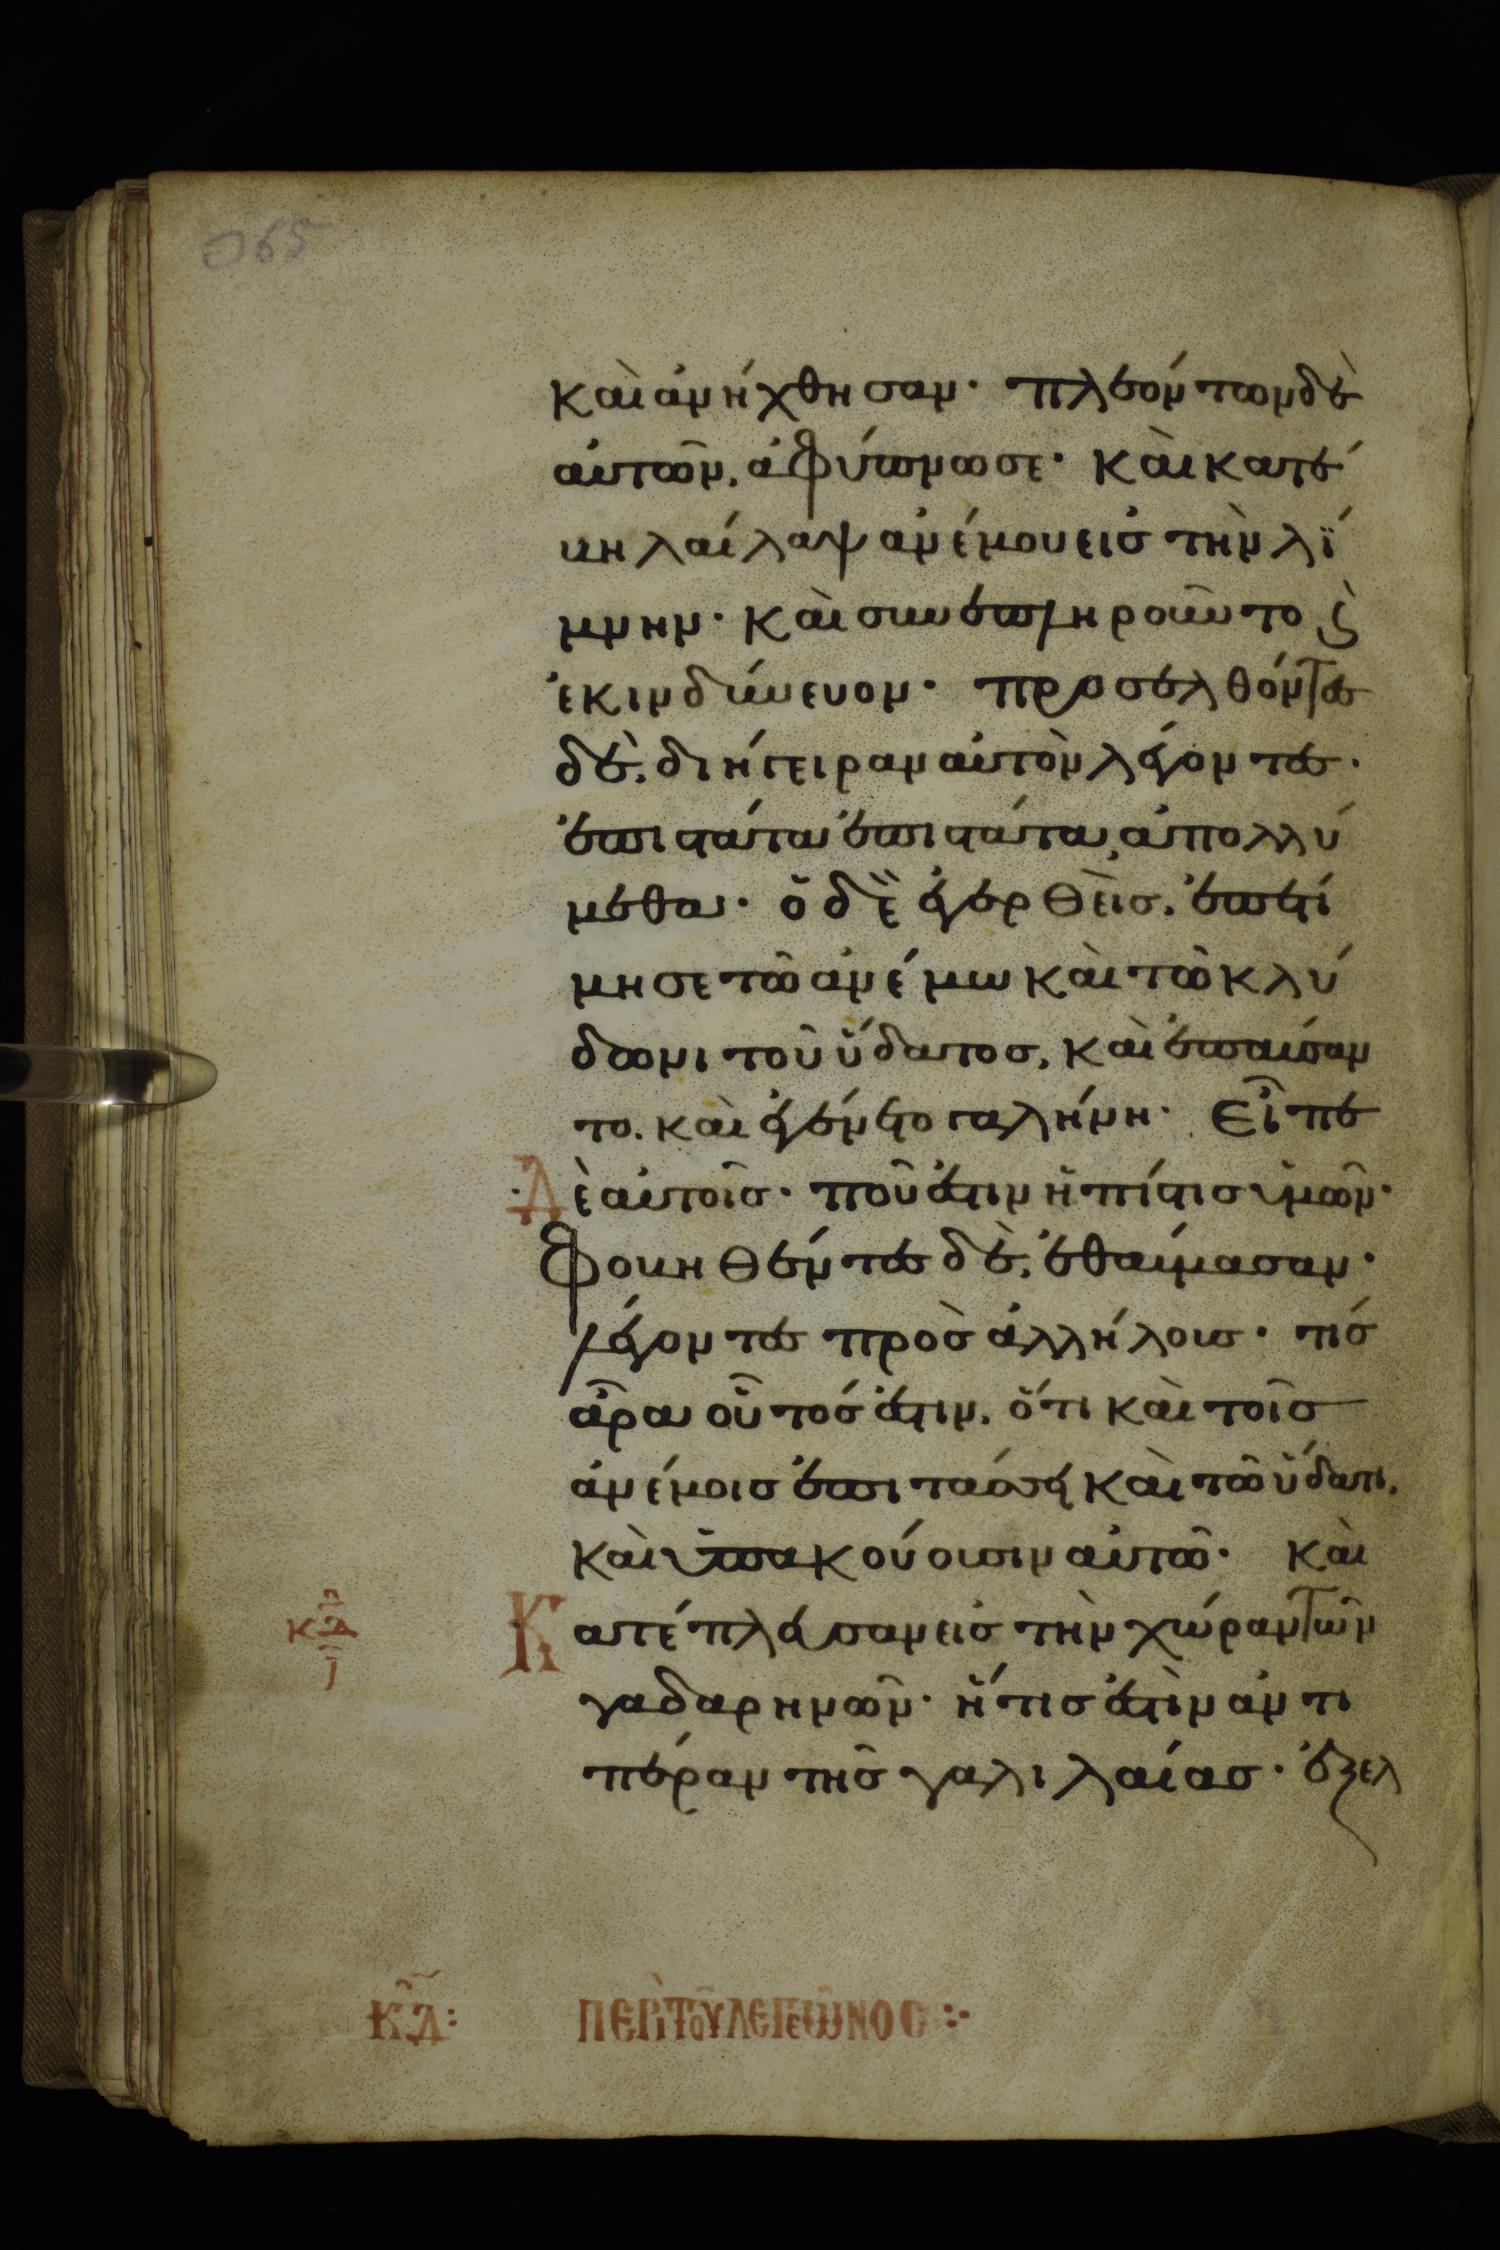 065
καὶ ἀνήχθησαν· πλεόντων δὲ
αὐτῶν, ἀφύπνωσε· καὶ κατέ
βη λαίλαψ ἀνέμου εἰς τὴν λί
μνην· καὶ συνεπληροῦντο ϛ̀
ἐκινδύνευον· προσελθόντες
δὲ, διήγειραν αὐτὸν λέγοντες·
ἐπιστάτα ἐπιστάτα, ἀπολλύ
μεθα· ὁ δὲ ἐγερθεὶς, ἐπετί
μησε τῶ ἀνέμω καὶ τῶ κλύ
δωνι τοῦ ὕδατος, καὶ ἐπαύσαν
το. καὶ ἐγένετο γαλήνη· Εἶπε
Δὲ αὐτοῖς· ποῦ ἐστιν ἡ πίστις ὑμῶν·
Φοβηθέντες δὲ, ἐθαύμασαν·
λέγοντες πρὸς ἀλλήλους· τίς
ἆρα οὗτός ἐστιν, ὅτι καὶ τοῖς
ἀνέμοις ἐπιτάσσει καὶ τῶ ὕδατι,
καὶ ὑπακούουσιν αὐτῶ· καὶ
κδ Κατέπλευσαν εἰς τὴν χώραν τῶν
γαδαρηνῶν· ἥτις ἐστὶν ἀντι
πέραν τῆς γαλιλαίας· ἐξελ
ΚΔ: ΠΕΡῚ ΤΟῦ ΛΕΓΕῶΝΟС :·